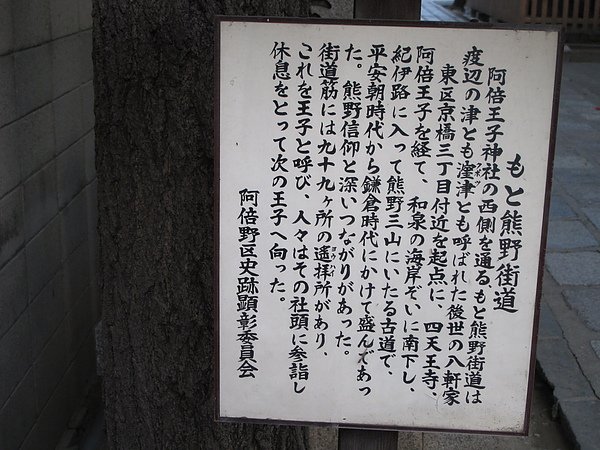 もと熊野街道
阿倍王子神社の西側を通るもと熊野街道は
渡辺の津とも窪津とも呼ばれた後世の八軒家
東区京橋三丁目付近を起点に、四天王寺、
阿倍王子を経て、和泉の海岸ぞいに南下し、
紀伊路に入って熊野三山にいたる古道で、
平安朝時代から鎌倉時代にかけて盛んであっ
た。熊野信仰と深いつながりがあった。
街道筋には九十九ヶ所の遙拝所があり、
これを王子と呼び、人々はその社頭に参詣し
休息をとって次の王子へ向った。
阿倍野区史跡顕彰委員会